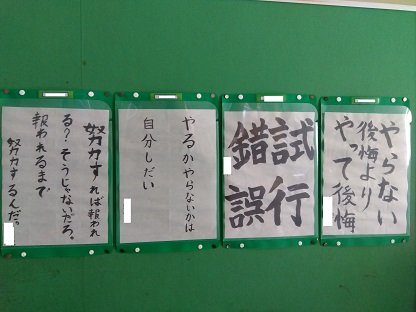 やらない
後悔より
やって後悔
試行
錯誤
やるかやらないかは
自分しだい
努力すれば報われ
る？そうじゃないだろ。
報われるまで
努力するんだ。